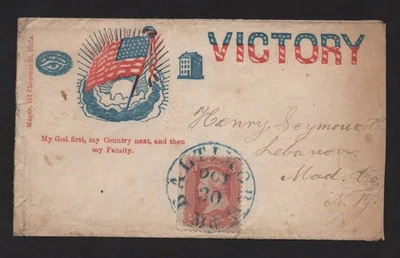 VICTORY
Magee, 316 Chestnut St., Phila.
My God first, my Country next, and then
my Family.
Henry Seymour
Lebanon
Mad. Co.
N. Y.
BALTIMORE
OCT
20
Md.